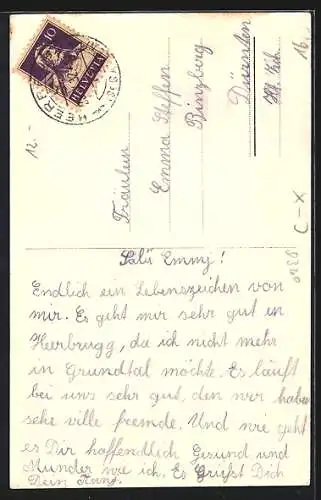 10
HELVETIA
HEERBR
12.-
16.
Fräulein
Emma Steffen
Binzberg
Dürnten
Kt. Zch.
C-X
8320
Salü Emmy!
Endlich ein Lebenszeichen von
mir. Es geht mir sehr gut in
Heerbrugg, da ich nicht mehr
in Grundtal möchte. Es läuft
bei uns sehr gut, den wir habe
sehr ville fremde. Und wie geht
es Dir haffendlich Gesund und
Munder wie ich. Es Grüßt Dich
Dein Hans.